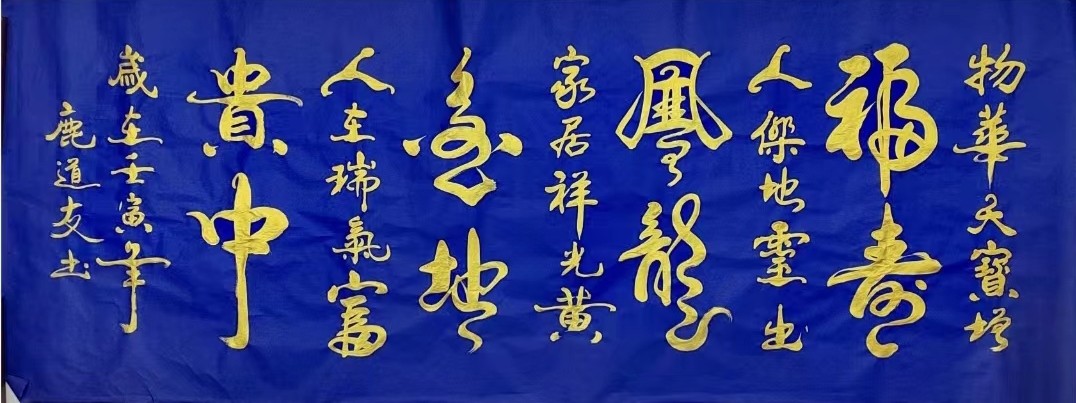 物華天寶增
福壽
人傑地靈出
鳳龍
家居祥光黃
金地
人在瑞氣富
貴中
歲在壬寅年
鹿道友书